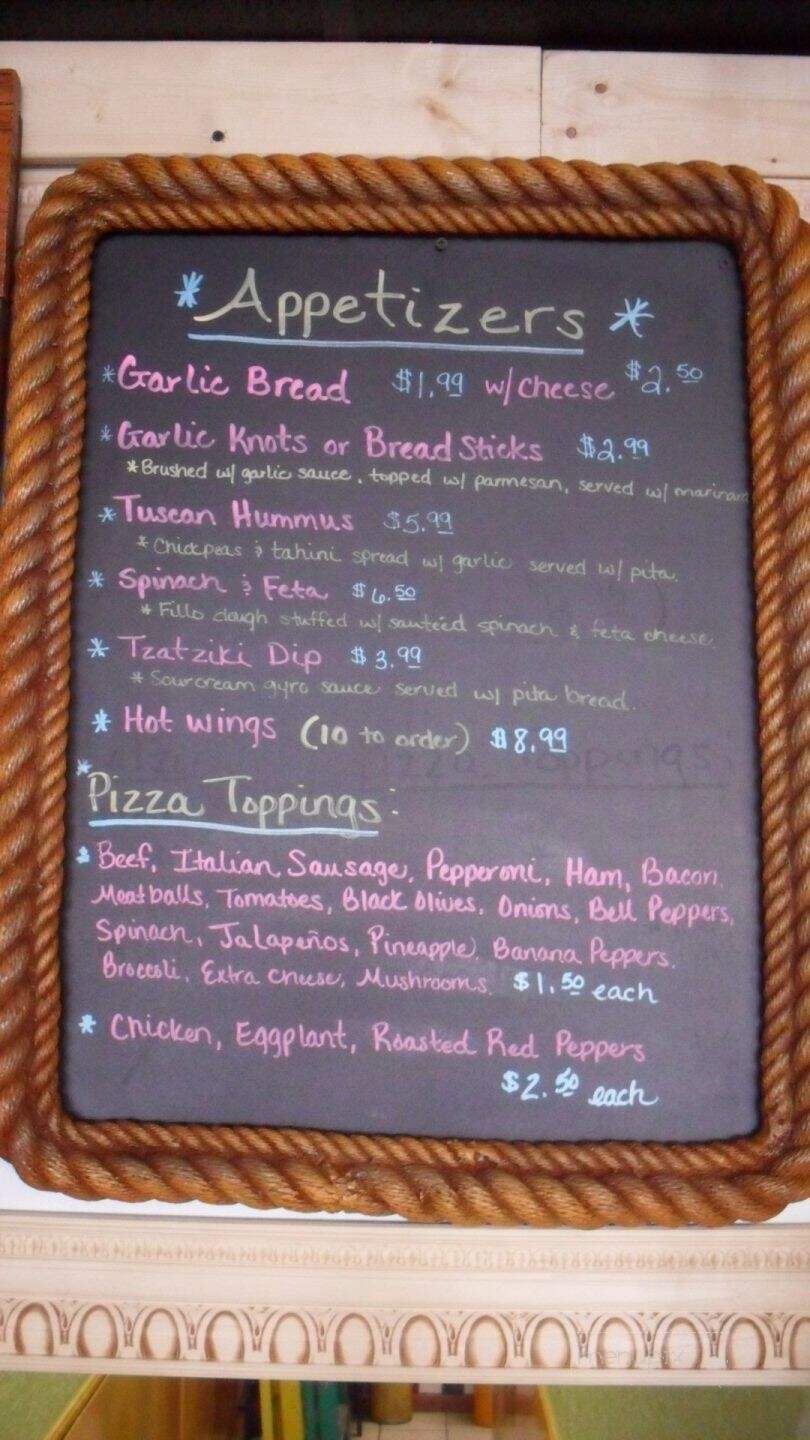 * Appetizers *
* Garlic Bread $1.99 w/ cheese $2.50
* Garlic Knots or Bread Sticks $2.99
* Brushed w/ garlic sauce, topped w/ parmesan, served w/ marinara
* Tuscan Hummus $5.99
* Chickpeas & tahini spread w/ garlic served w/ pita.
* Spinach & Feta $6.50
* Fillo dough stuffed w/ sauteéd spinach & feta cheese.
* Tzatziki Dip $3.99
* Sourcream gyro sauce served w/ pita bread.
* Hot wings (10 to order) $8.99
* Pizza Toppings:
* Beef, Italian Sausage, Pepperoni, Ham, Bacon,
Meatballs, Tomatoes, Black Olives, Onions, Bell Peppers,
Spinach, Jalapeños, Pineapple, Banana Peppers,
Broccoli, Extra Cheese, Mushrooms. $1.50 each
* Chicken, Eggplant, Roasted Red Peppers
$2.50 each